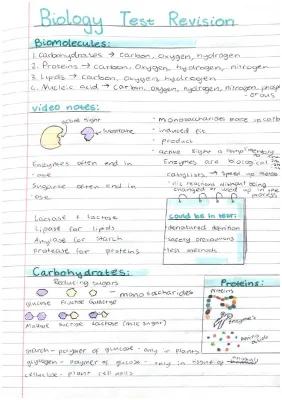 Biology Test Revision
Biomolecules:
1. Carbohydrates → carbon, oxygen, hydrogen
2. Proteins → carbon, oxygen, hydrogen, nitrogen
3. Lipids → carbon, oxygen, hydrogen
4. Nucleic acid → carbon, oxygen, hydrogen, nitrogen, phosphorous
video notes:
active sight
substrate
• monosaccharides
• induced fit
• product
• active sight
Enzymes often end in
"ose"
Enzymes are biological
catalysts → speed up
reactions without being
changed or used up in the
process
Sugarse often end in
ose
Lactose + lactose
Lipase for lipids
Amylase for starch
protease for proteins
could be in test:
denatured definition
safety precautions
test methods
Carbohydrates:
Reducing sugars
monosaccharides
glucose Fructose Galactose
Maltose Sucrose Lactose (milk sugar)
starch - polymer of glucose - only in plants
glycogen - polymer of glucose - only in
cellulose - plant cell walls
Proteins:
proteins
enzymes
amino
acids